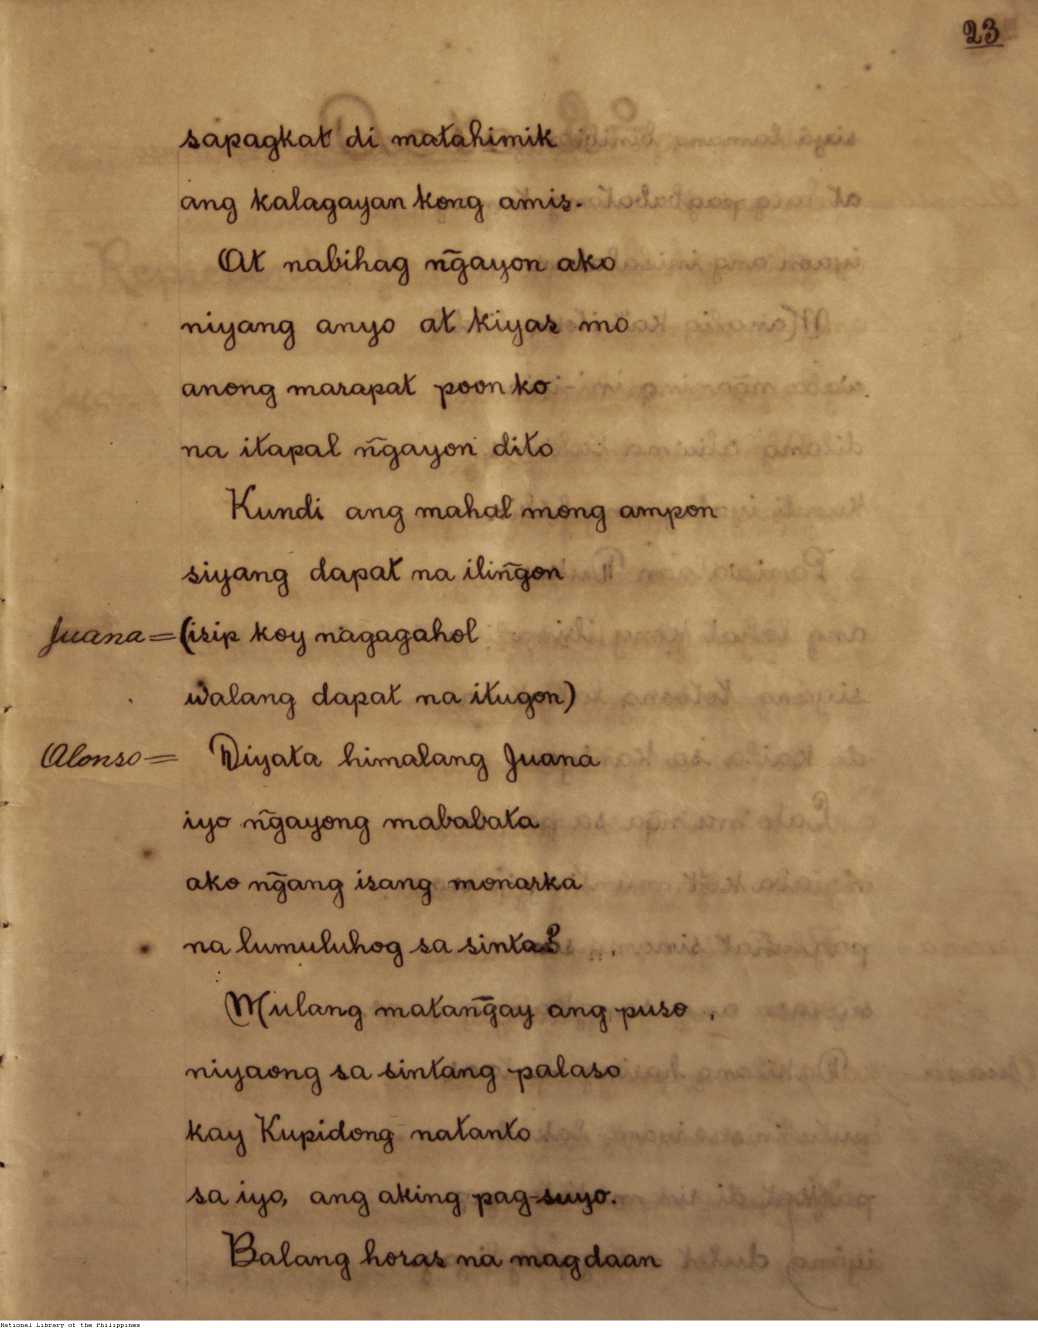 23
sapagkat di matahimik
ang kalagayan kong amis.
At nabihag n͠gayon ako
niyang anyo at kiyas mo
anong marapat poon ko
na itapal n͠gayon dito
Kundi ang mahal mong ampon
siyang dapat na ilin͠gon
Juana = (isip koy nagagahol
walang dapat na itugon)
Alonso = Diyata himalang Juana
iyo n͠gayong mababata
ako n͠gang isang monarka
na lumuluhog sa sinta?
Mulang matan͠gay ang puso,
niyaong sa sintang palaso
kay Kupidong natanto
sa iyo, ang aking pag-suyo.
Balang horas na magdaan
National Library of the Philippines